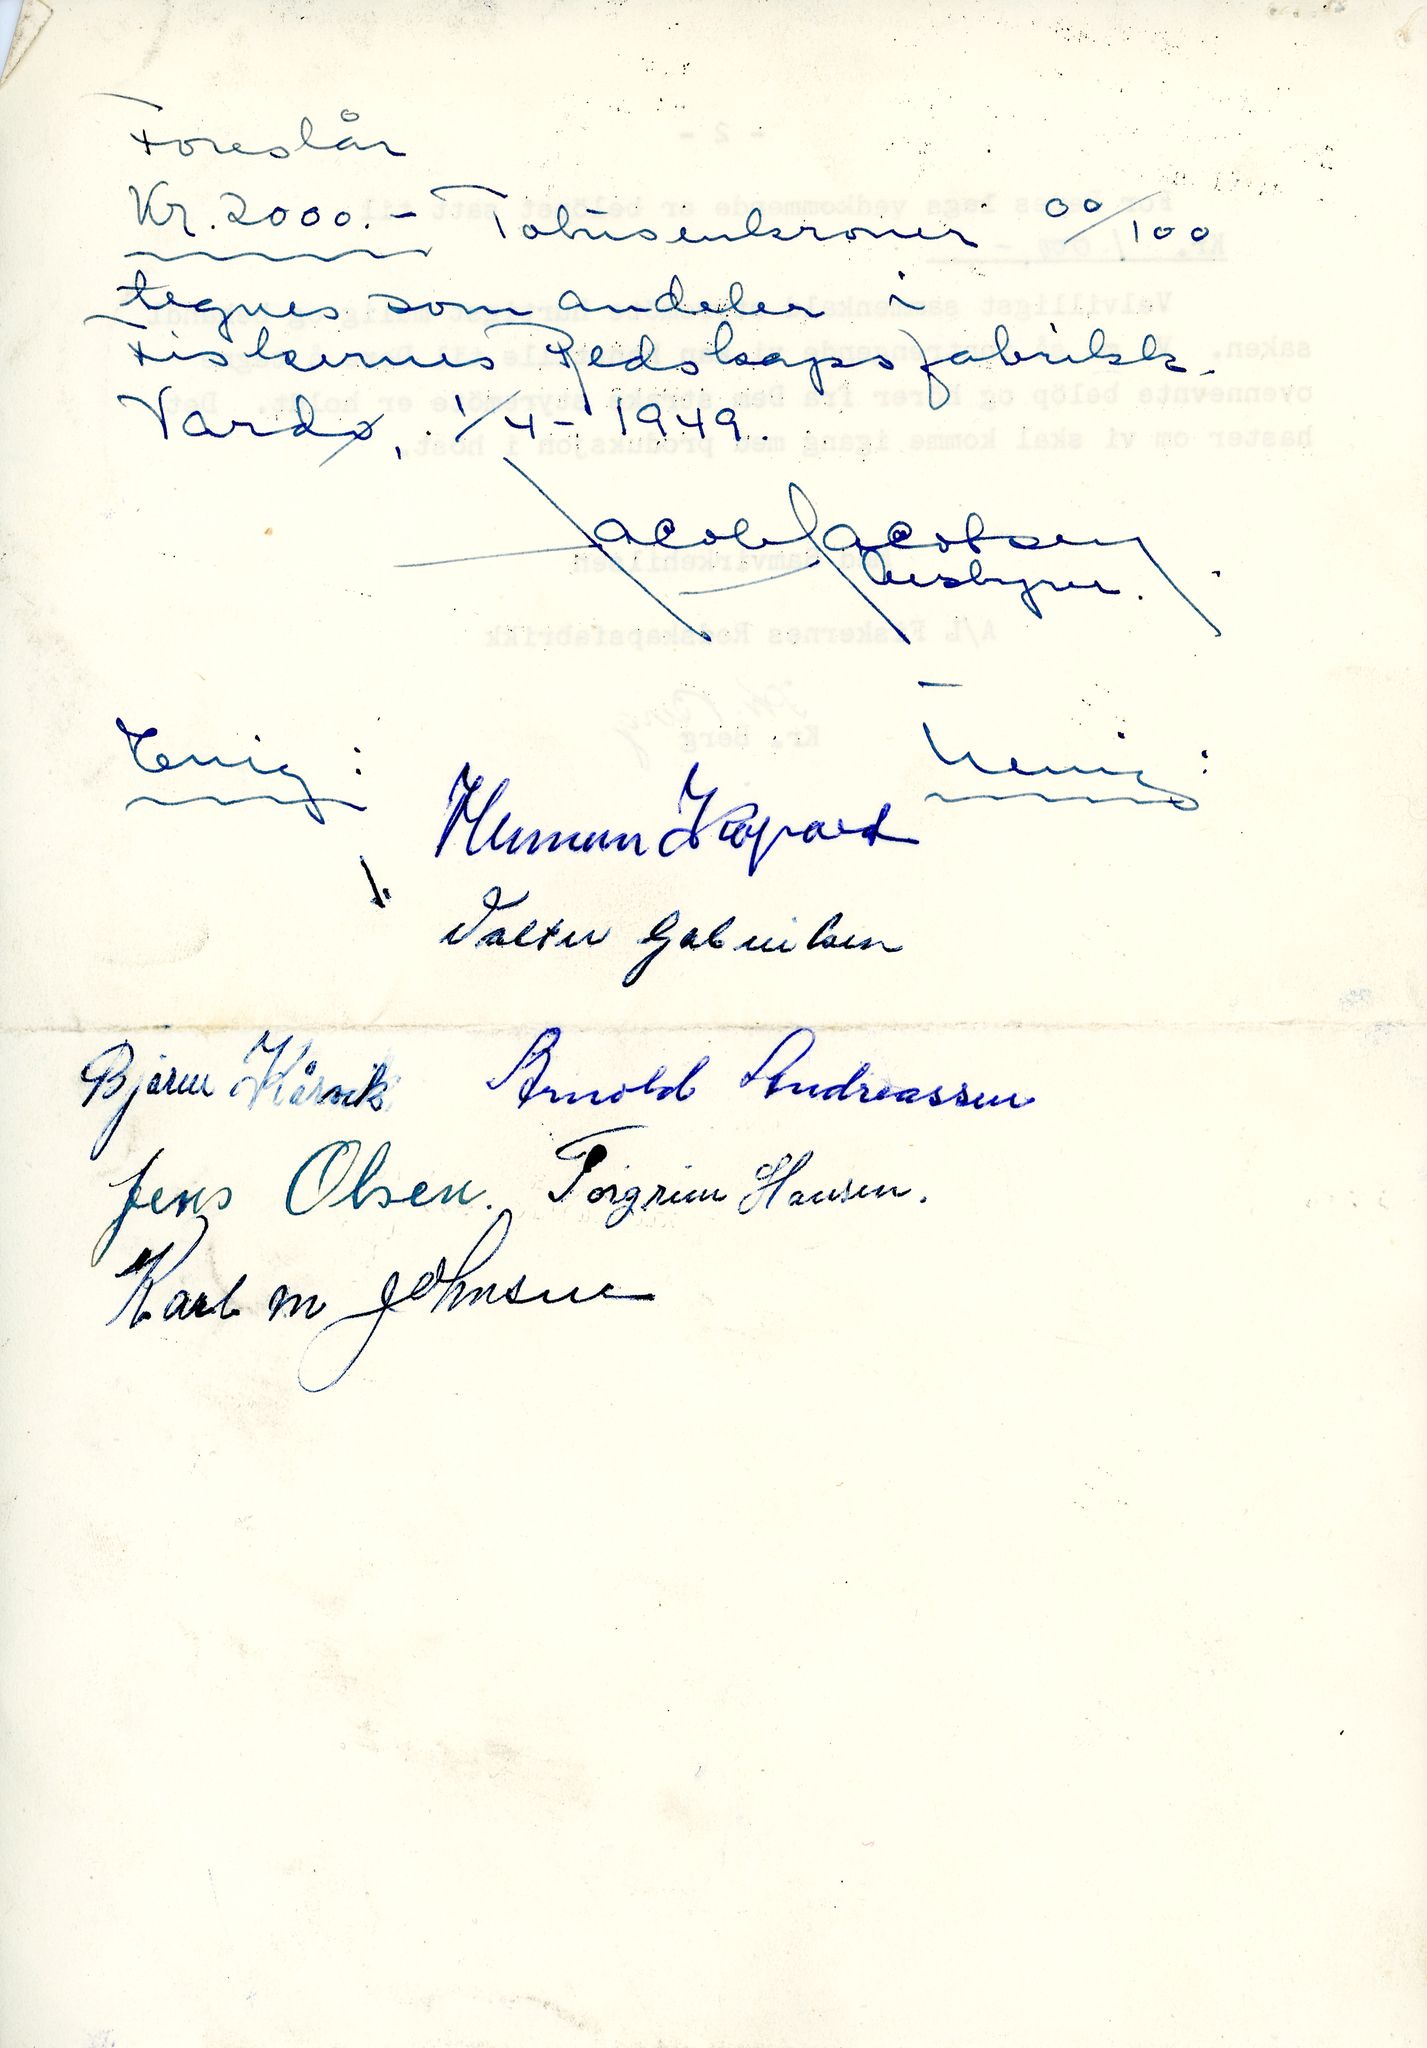 Foreslår
Kr. 2000.- Totusenkroner 00/100
tegnes som andeler i
Fiskernes Redskapsfabrikk.
Vardø, 1/4-1949.
Jacob Jacobsen
Bestyrer.
Enig: Uenig:
Valter Gabrielsen
Bjarne Arnold Andreassen
Jens Olsen. Torgrim Hansen.
Karl M Johnsen